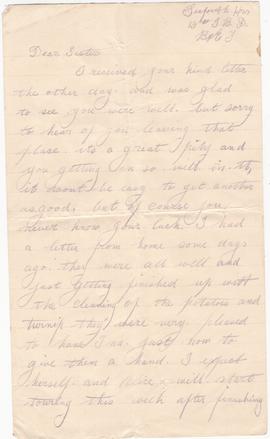 Dear Sister
I received your kind letter
the other day. and was glad
to see you were well. but sorry
to hear of you leaving that
place its a great pity and
you getting on so well in it,
it wont be easy to get another
as good. but of course you
never know your luck. I had
a letter from home some days
ago. they were all well and
just getting finished up with
the cleaning of the potatoes and
turnip they were very pleased
to have just now to
give them a hand. I expect
herself and will start
touring this week after finishing